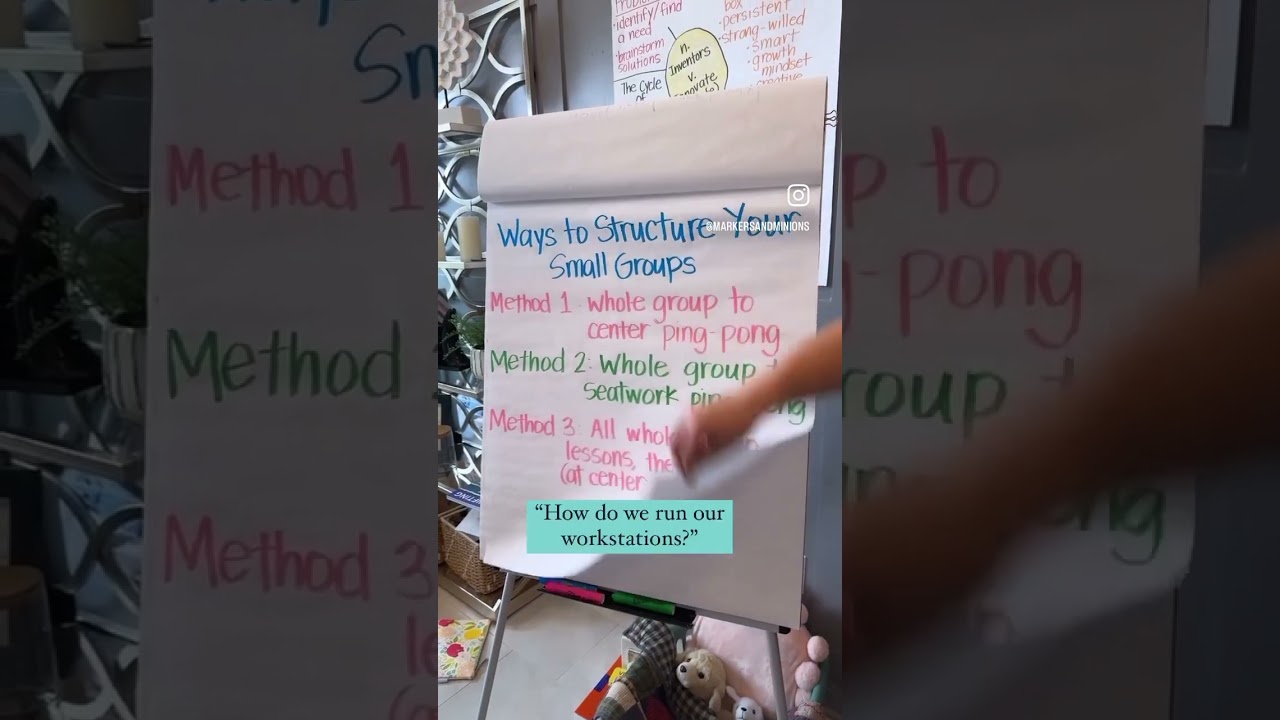 identify/find
a need
•brainstorm
solutions
The Cycle
of
n.
Inventors
v.
box
•persistent
•strong-willed
•smart
•growth
mindset
creative
@MARKERSANDMINIONS
Ways to Structure Your
Small Groups
Method 1: whole group to
center ping-pong
Method 2: Whole group
seatwork
Method 3: All
lessons,
(at center
"How do we run our
workstations?"